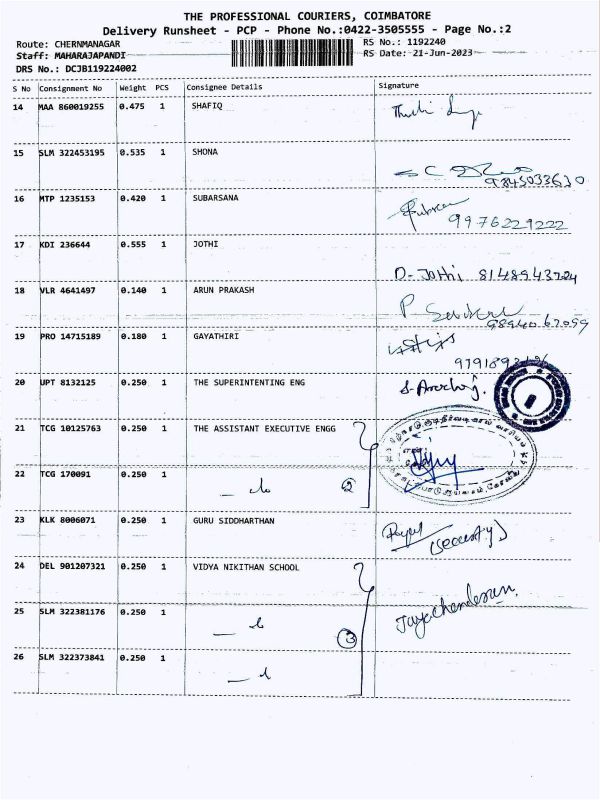 THE PROFESSIONAL COURIERS, COIMBATORE
Delivery Runsheet - PCP - Phone No.:0422-3505555 - Page No.:2
Route: CHERNMANAGAR
RS No.: 1192240
Staff: MAHARAJAPANDI
RS Date: 21-Jun-2023
DRS No.: DCJB119224002
S No Consignment No Weight PCS Consignee Details Signature
14 MAA 860019255 0.475 1 SHAFIQ
15 SLM 322453195 0.535 1 SHONA
9845033630
16 MTP 1235153 0.420 1 SUBARSANA
9976229222
17 KDI 236644 0.555 1 JOTHI
D. Jothi
18 VLR 4641497 0.140 1 ARUN PRAKASH
P
98940 67099
19 PRO 14715189 0.180 1 GAYATHIRI
20 UPT 8132125 0.250 1 THE SUPERINTENTING ENG
21 TCG 10125763 0.250 1 THE ASSISTANT EXECUTIVE ENGG
22 TCG 170091 0.250 1
2
23 KLK 8006071 0.250 1 GURU SIDDHARTHAN
24 DEL 901207321 0.250 1 VIDYA NIKITHAN SCHOOL
Jayachanderan
25 SLM 322381176 0.250 1
3
26 SLM 322373841 0.250 1